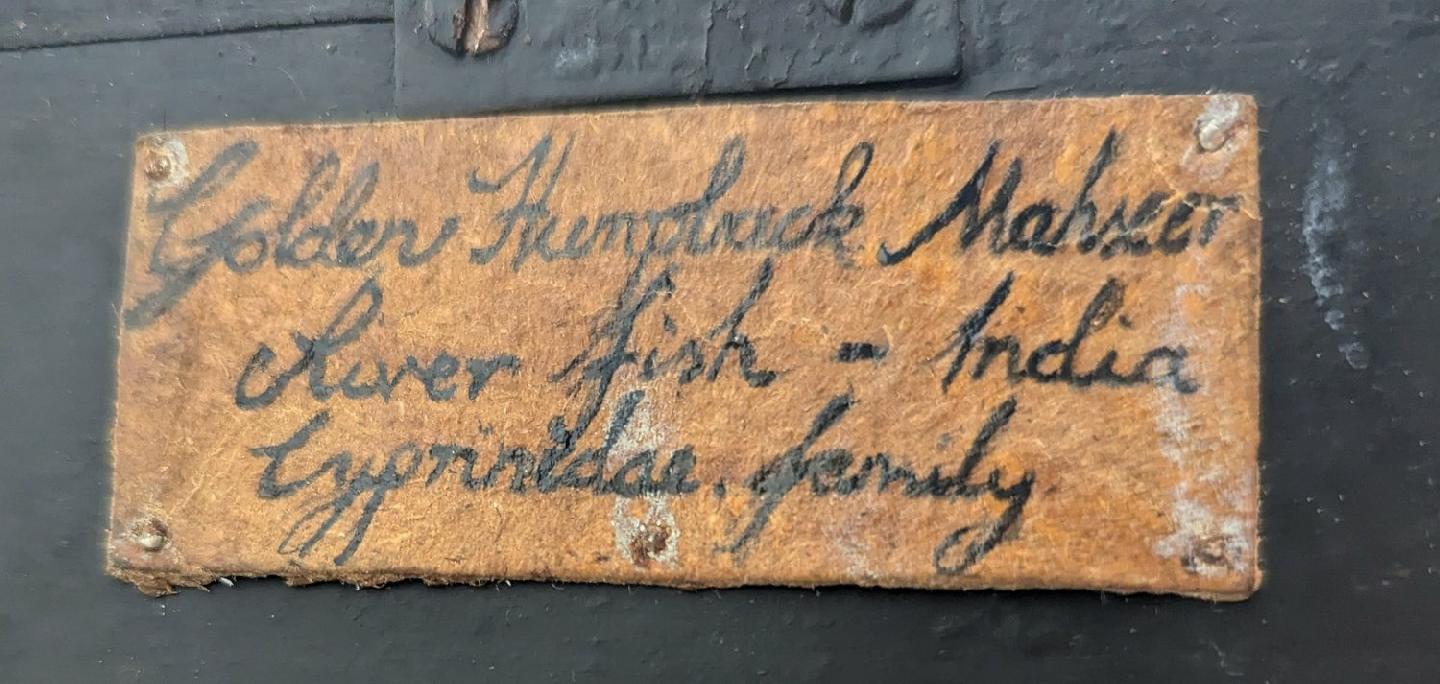 Golden Humpback Mahseer
River fish - India
Cyprinidae. family